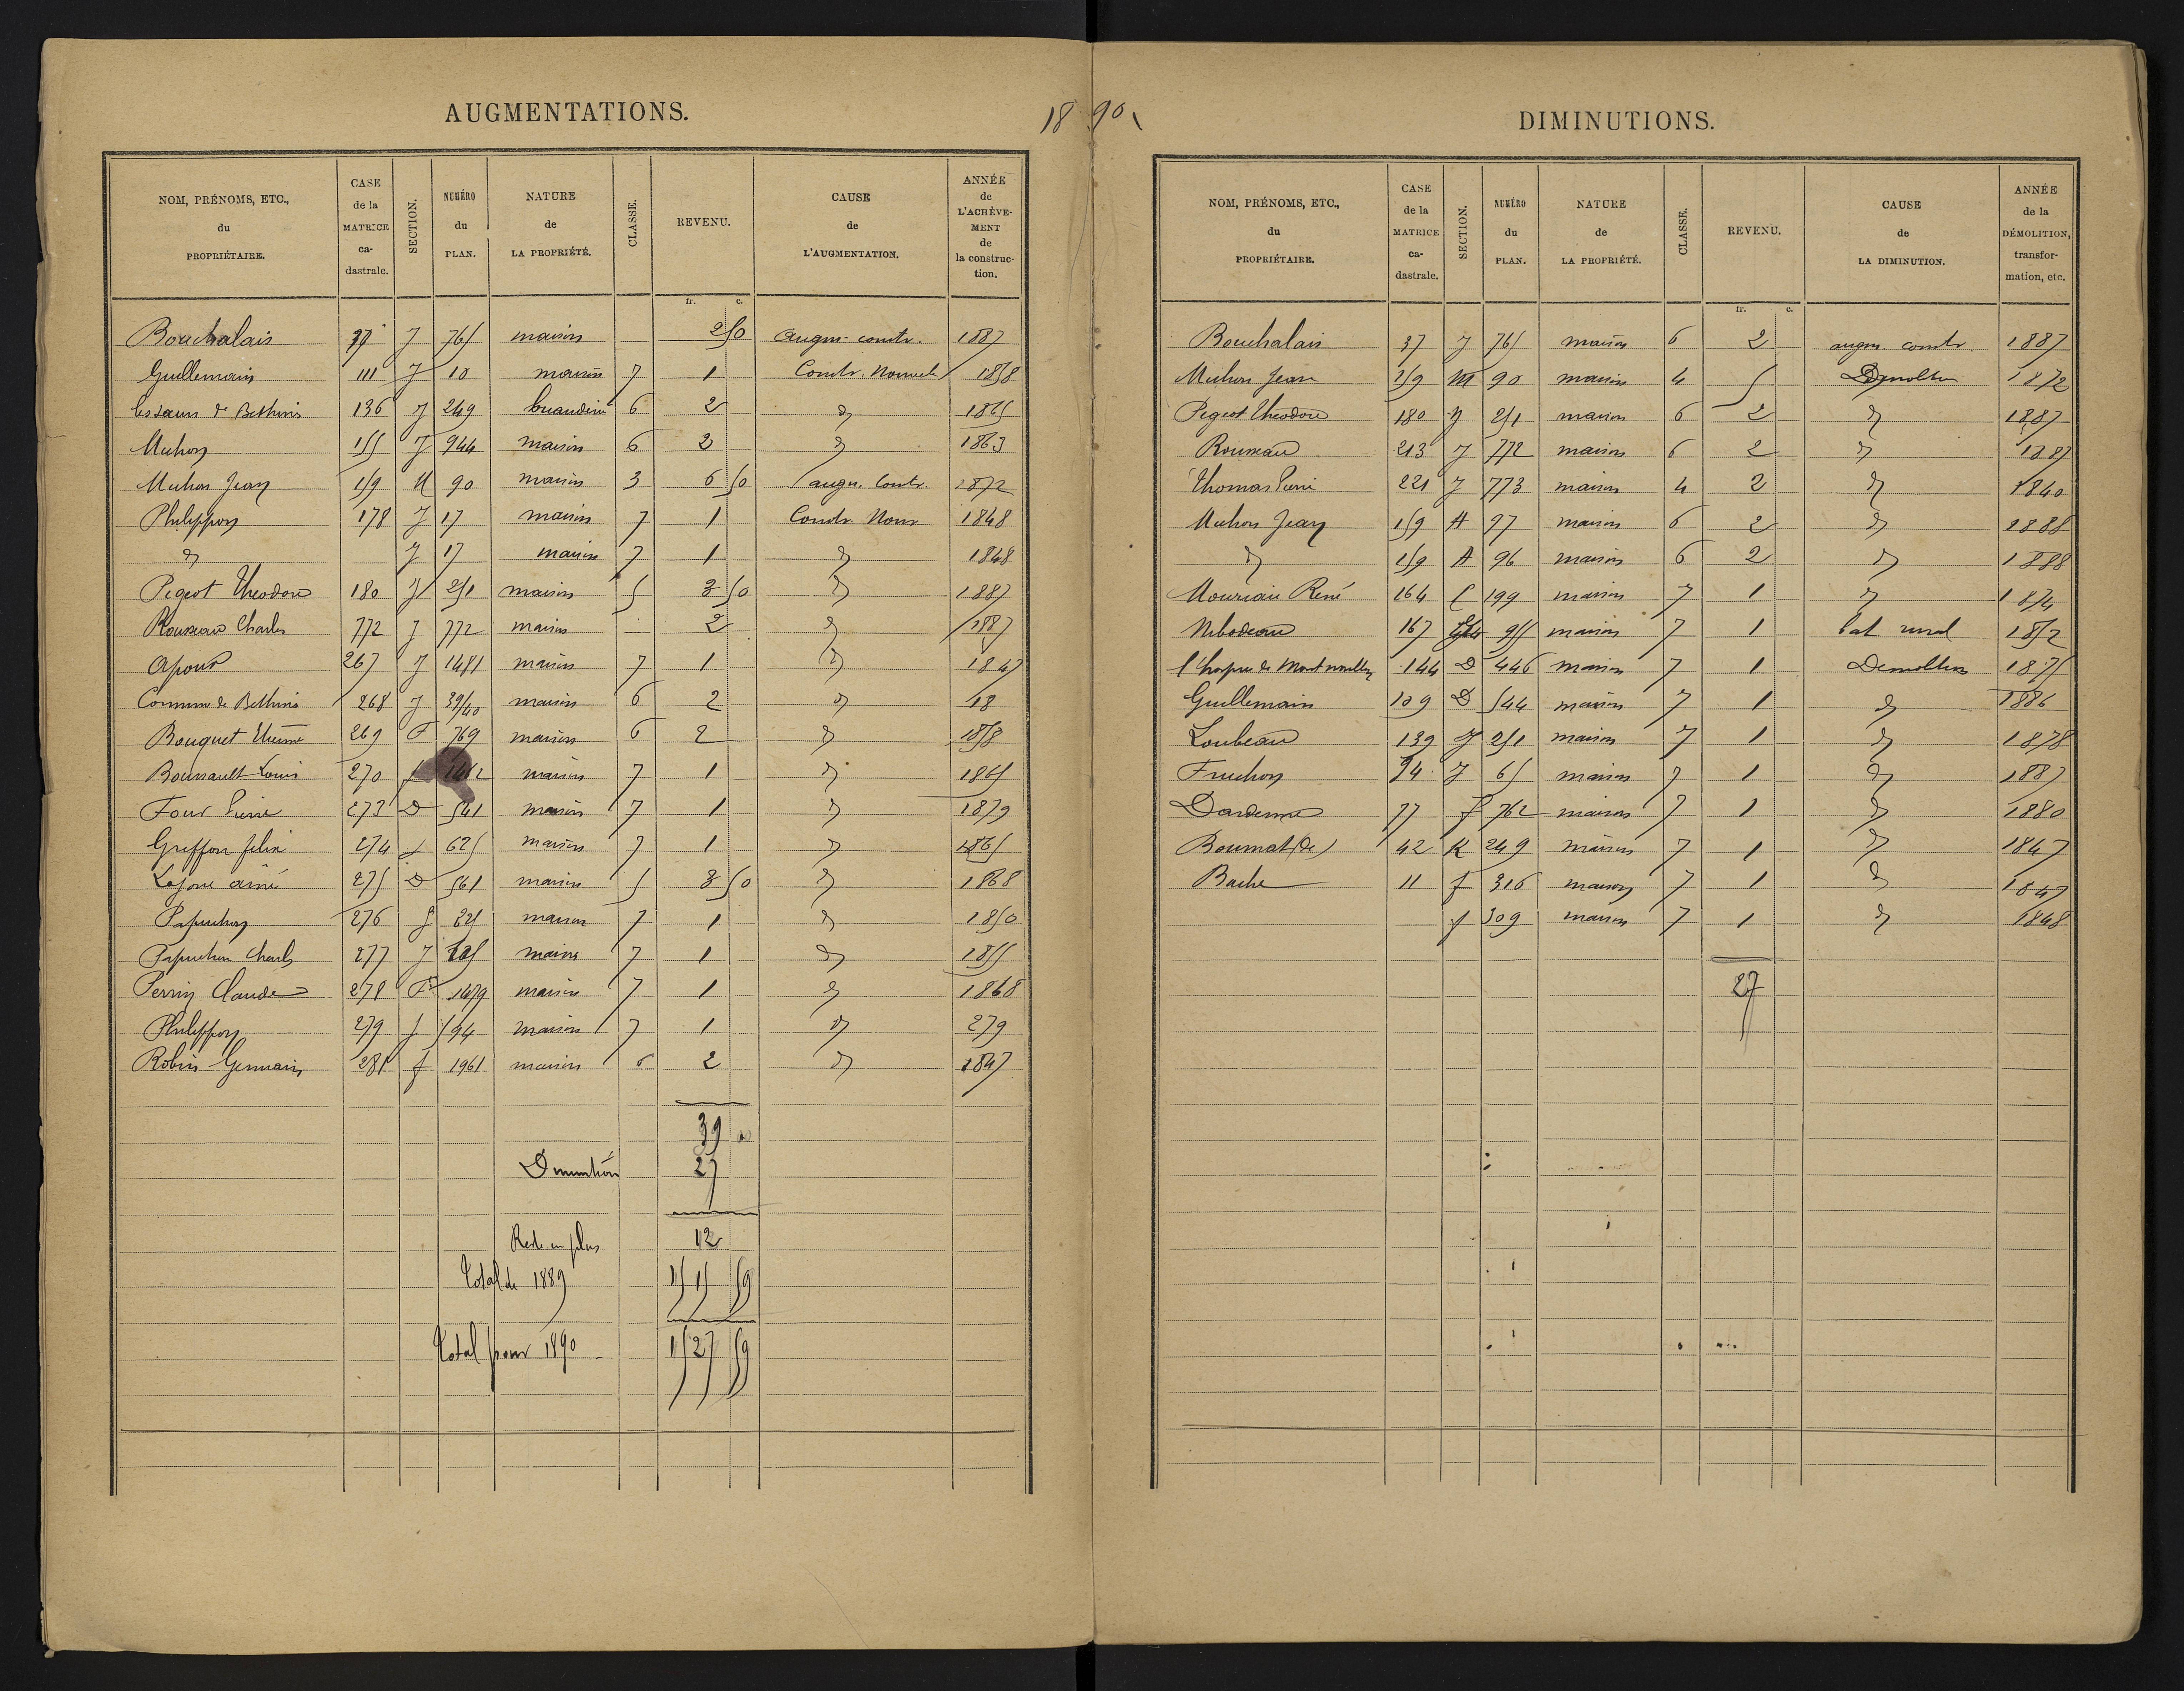 18 90
AUGMENTATIONS.
NOM, PRÉNOMS, ETC., du PROPRIÉTAIRE. CASE de la MATRICE ca-dastrale. SECTION. NUMÉRO du PLAN. NATURE de LA PROPRIÉTÉ. CLASSE. REVENU. CAUSE de L'AUGMENTATION. ANNÉE de L'ACHÈVE-MENT de la construc-tion.
fr. c.
Bouchalais 37 J 765 maison 2 50 augm. constr. 1887
Guillemain 111 J 10 maison 7 1 Constr. Nouvele 1858
136 J 249 6 2 d 1865
Michon 155 J 944 maison 6 2 d 1863
Michon Jean 159 M 90 maison 3 6 50 augm. Constr. 1872
Philippon 178 J 17 maison 7 1 Constr. Nouv 1848
d J 17 maison 7 1 d 1848
Pegeot Theodore 180 J 251 maison 5 3 50 d 1887
Rousseau Charles 772 J 772 maison 2 d 1887
267 J 1481 maison 7 1 d 1847
Commune de Bethines 268 J 39/40 maison 6 2 d 18
Bouquet 269 F 769 maison 6 2 d 1858
Boursault Louis 270 f maison 7 1 d 1865
Four Pierre 273 D 541 maison 7 1 d 1879
Griffon felix 274 625 maison 7 1 d 1865
275 D 561 maison 5 3 50 d 1868
Papuchon 276 maison 7 1 d 1850
Papuchon Charles 277 J maison 7 1 d 1855
Perrin Claude 278 F 1479 maison 7 1 d 1868
Philippon 279 f 594 maison 7 1 d 279
Robin Germain 281 f 1961 maison 6 2 d 1847
39 00
Diminution 27
Reste en plus 12
Total de 1889 1515 59
Total pour 1890 1527 59
DIMINUTIONS.
NOM, PRÉNOMS, ETC., du PROPRIÉTAIRE. CASE de la MATRICE ca-dastrale. SECTION. NUMÉRO du PLAN. NATURE de LA PROPRIÉTÉ. CLASSE. REVENU. CAUSE de LA DIMINUTION. ANNÉE de la DÉMOLITION, transfor-mation, etc.
fr. c.
Bouchalais 37 J 765 maison 6 2 augm. constr. 1887
Michon Jean 159 M 90 maison 4 5 Demolition 1872
Pegeot Theodore 180 J 251 maison 6 2 d 1887
Rousseau 213 J 772 maison 6 2 d 1887
Thomas Pierre 221 J 773 maison 4 2 d 1840
Michon Jean 159 A 97 maison 6 2 d 1888
d 159 A 96 maison 6 2 d 1888
René 164 C 199 maison 7 1 d 1874
167 955 maison 7 1 bat rural 1852
144 D 446 maison 7 1 Demolition 1875
Guillemain 109 D 544 maison 7 1 d 1886
Loubeau 139 J 251 maison 7 1 d 1878
Fruchon 94 J 65 maison 7 1 d 1887
Dardenne 77 f 762 maison 7 1 d 1880
42 K 249 maison 7 1 d 1847
Bache 11 f 316 maison 7 1 d 1847
f 309 maison 7 1 d 1848
27